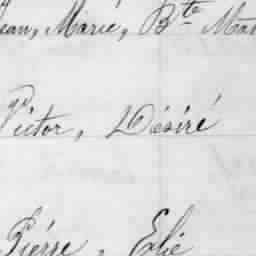 Jean, Marie, Bte Mar
Victor, Désiré
Pierre, Elie